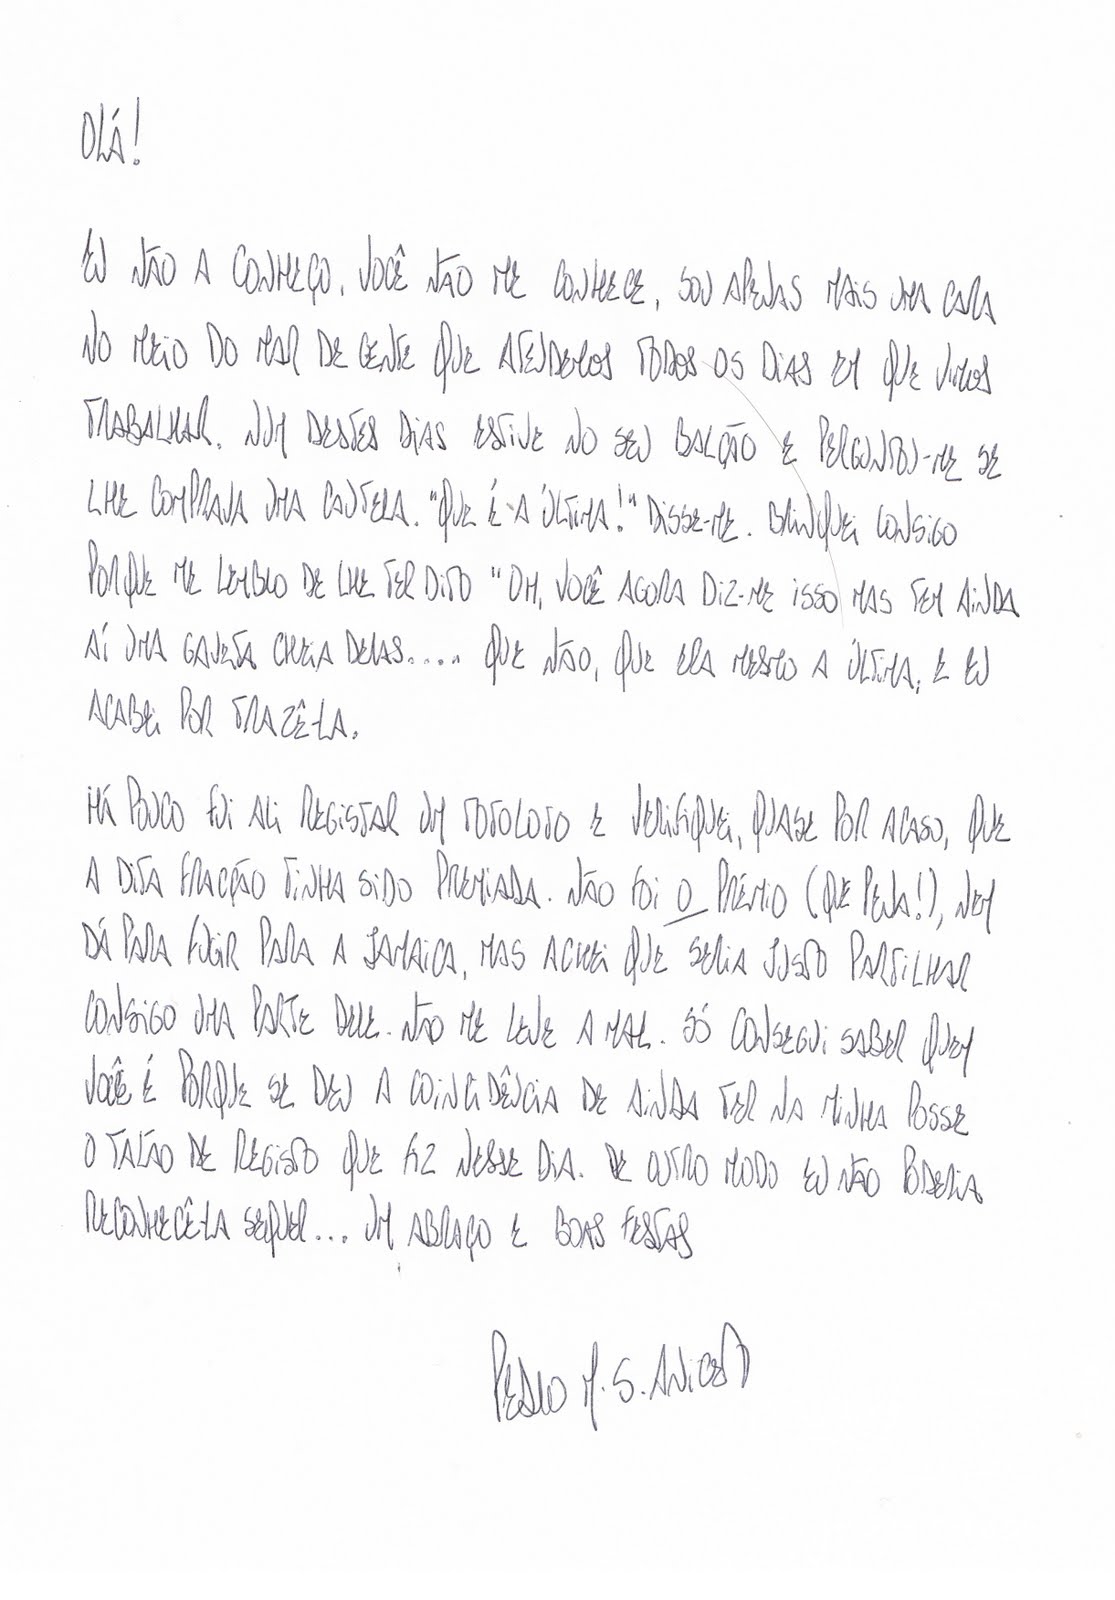 OLÁ!
EU NÃO A CONHEÇO, VOCÊ NÃO ME CONHECE, SOU APENAS MAIS UMA CARA
NO MEIO DO MAR DE GENTE QUE ATENDEMOS TODOS OS DIAS EM QUE VIMOS
TRABALHAR. NUM DESTES DIAS ESTIVE NO SEU BALCÃO E PERGUNTOU-ME SE
LHE COMPRAVA UMA CAUTELA. "QUE É A ÚLTIMA!" DISSE-ME. BRINQUEI CONSIGO
PORQUE ME LEMBRO DE LHE TER DITO "OH, VOCÊ AGORA DIZ-ME ISSO MAS TEM AINDA
AÍ UMA GAVETA CHEIA DELAS..... QUE NÃO, QUE ERA MESMO A ÚLTIMA, E EU
ACABEI POR TRAZÊ-LA.
HÁ POUCO FUI ALI REGISTAR UM TOTOLOTO E VERIFIQUEI, QUASE POR ACASO, QUE
A DITA FRACÇÃO TINHA SIDO PREMIADA. NÃO FOI O PRÉMIO (QUE PENA!), NEM
DÁ PARA FUGIR PARA A JAMAICA, MAS ACHEI QUE SERIA JUSTO PARTILHAR
CONSIGO UMA PARTE DELE. NÃO ME LEVE A MAL. SÓ CONSEGUI SABER QUEM
VOCÊ É PORQUE SE DEU A COINCIDÊNCIA DE AINDA TER NA MINHA POSSE
O TALÃO DE REGISTO QUE FIZ NESSE DIA. DE OUTRO MODO EU NÃO PODERIA
RECONHECÊ-LA SEQUER... UM ABRAÇO E BOAS FESTAS
PEDRO M. S. ANICETO